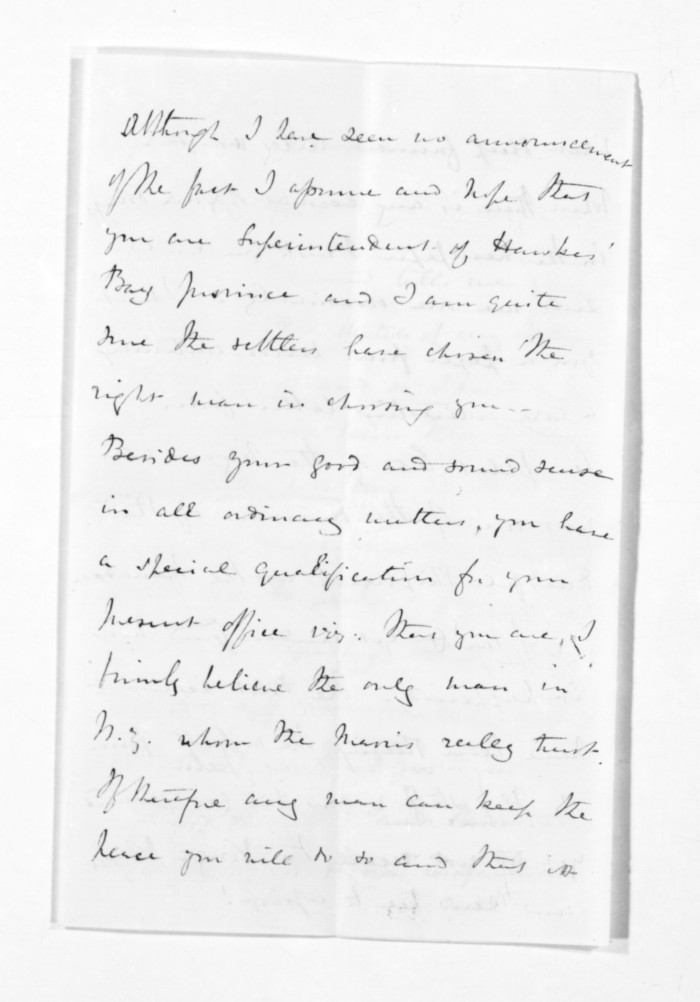 Although I have seen no announcement
of the fact I assume and hope that
you are Superintendent of Hawkes'
Bay Province and I am quite
sure the settlers have chosen the
right man in choosing you -
Besides your good and sound sense
in all ordinary matters, you have
a special qualification for your
present office viz. that you are, I
firmly believe the only man in
N.Z. whom the Maoris really trust.
If therefore any man can keep the
peace you will do so and that is